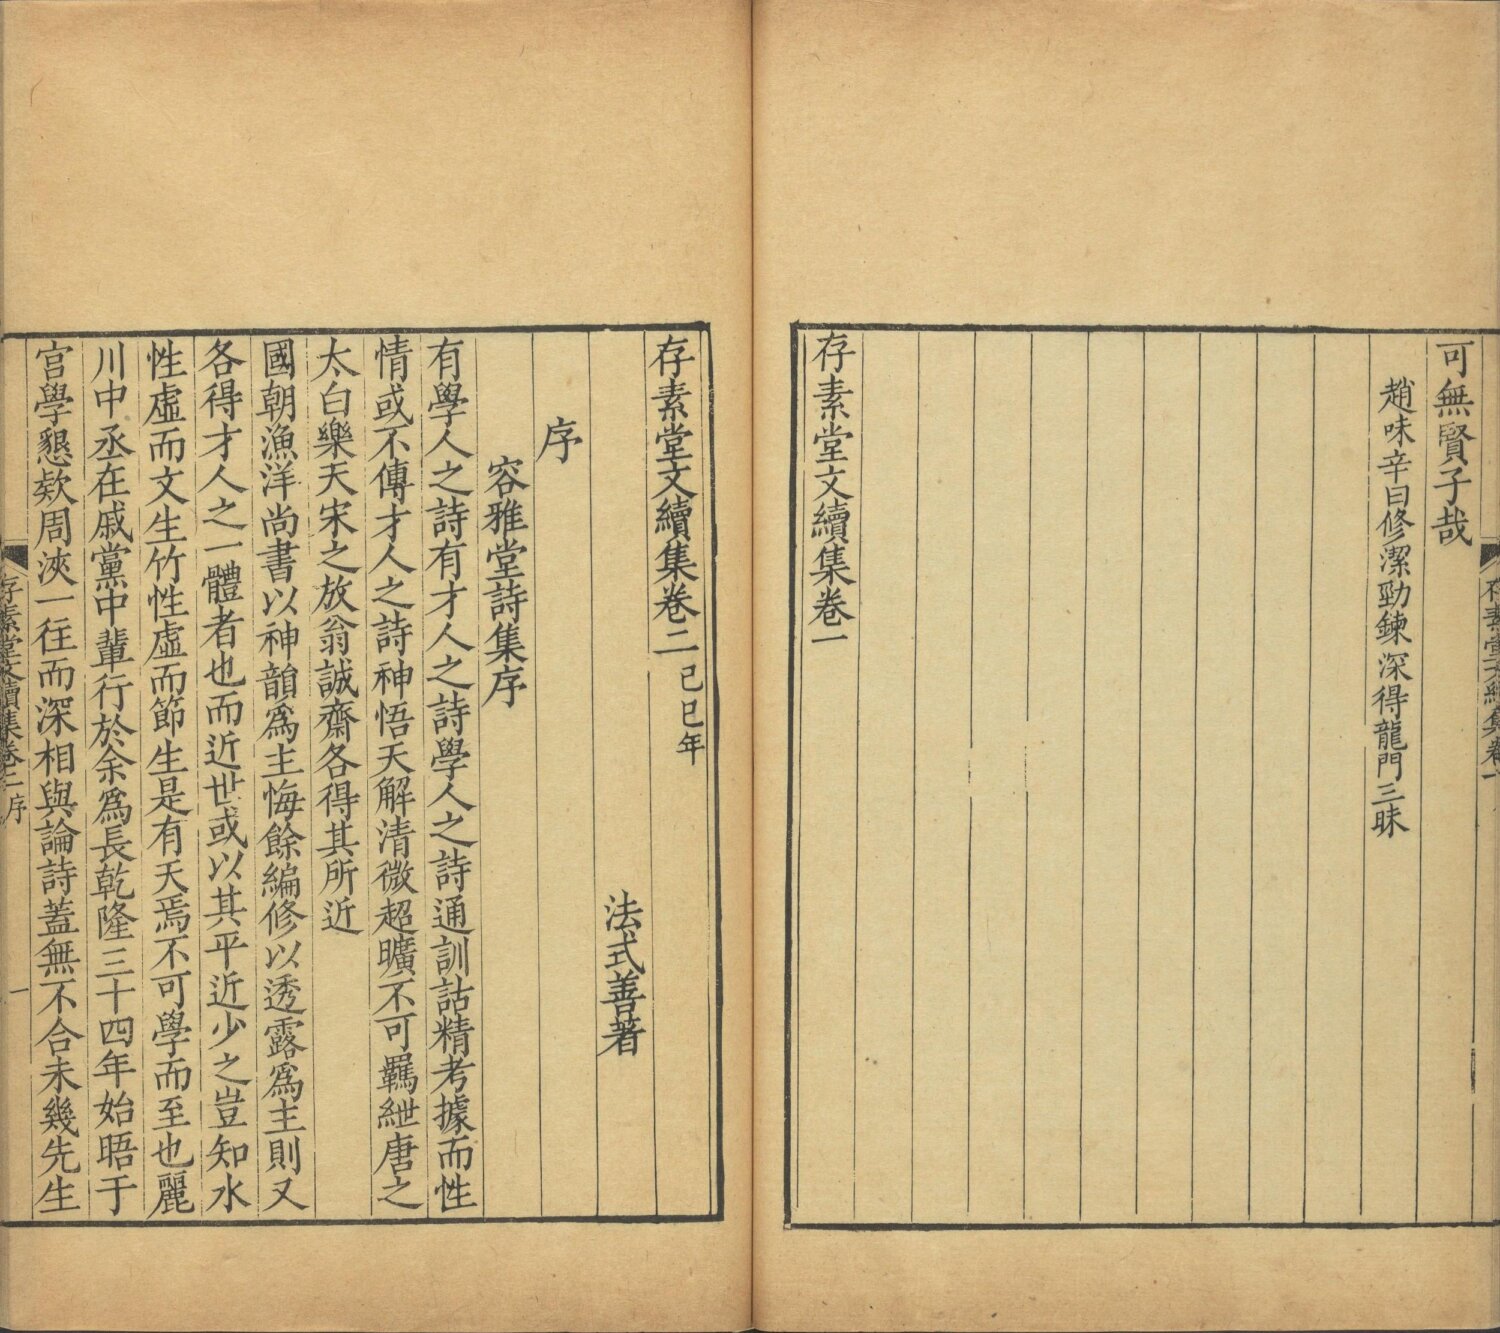 存素堂文續集卷一
可無賢子哉
趙味辛曰修潔勁鍊深得龍門三昧
存素堂文續集卷一
存素堂文續集卷二 己巳年
法式善著
序
容雅堂詩集序
有學人之詩有才人之詩學人之詩通訓詁精考據而性
情或不傳才人之詩神悟天解清微超曠不可羈紲唐之
太白樂天宋之放翁誠齋各得其所近
國朝漁洋尚書以神韻爲主悔餘編修以透露爲主則又
各得才人之一體者也而近世或以其平近少之豈知水
性虛而文生竹性虛而節生是有天焉不可學而至也麗
川中丞在戚黨中輩行於余爲長乾隆三十四年始晤于
官學懇欵周浹一往而深相與論詩蓋無不合未幾先生
存素堂文續集卷二 序 一